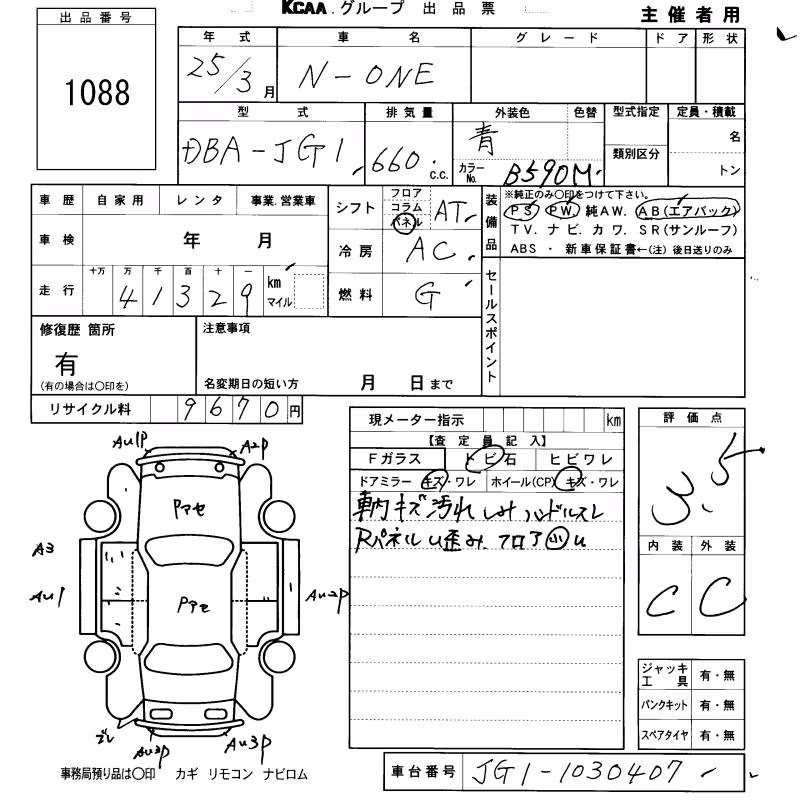 KCAA.グループ 出品票
主催者用
出品番号
1088
年式 車名 グレード ドア 形状
25/3月 N-ONE
型式 排気量 外装色 色替 型式指定 定員・積載
DBA-JG1 660 c.c. 青 名
カラーNo. B590M 類別区分 トン
車歴 自家用 レンタ 事業.営業車
車検 年 月
走行 十万 万 千 百 十 一
41329 km マイル
シフト フロア コラム パネル AT
冷房 AC
燃料 G
装備品 ※純正のみ〇印をつけて下さい。
PS PW 純AW. AB(エアバック)
TV. ナビ. カワ. SR(サンルーフ)
ABS ・ 新車保証書←(注) 後日送りのみ
セールスポイント
修復歴 箇所
有
(有の場合は〇印を)
注意事項
名変期日の短い方 月 日まで
リサイクル料 9670円
現メーター指示 km
【査定員記入】
Fガラス トビ石 ヒビワレ
ドアミラー キズ・ワレ ホイール(CP) キズ・ワレ
車内キズ汚れ シミ ハンドルスレ
Rパネルu歪み. フロア小u
評価点
3.5
内装 外装
C C
ジャッキ工具 有・無
パンクキット 有・無
スペアタイヤ 有・無
AU1P A2P
Pアセ
A3
AU1 AU2P
Pアセ
ズレ
AU3P AU3P
事務局預り品は〇印 カギ リモコン ナビロム
車台番号 JG1-1030407